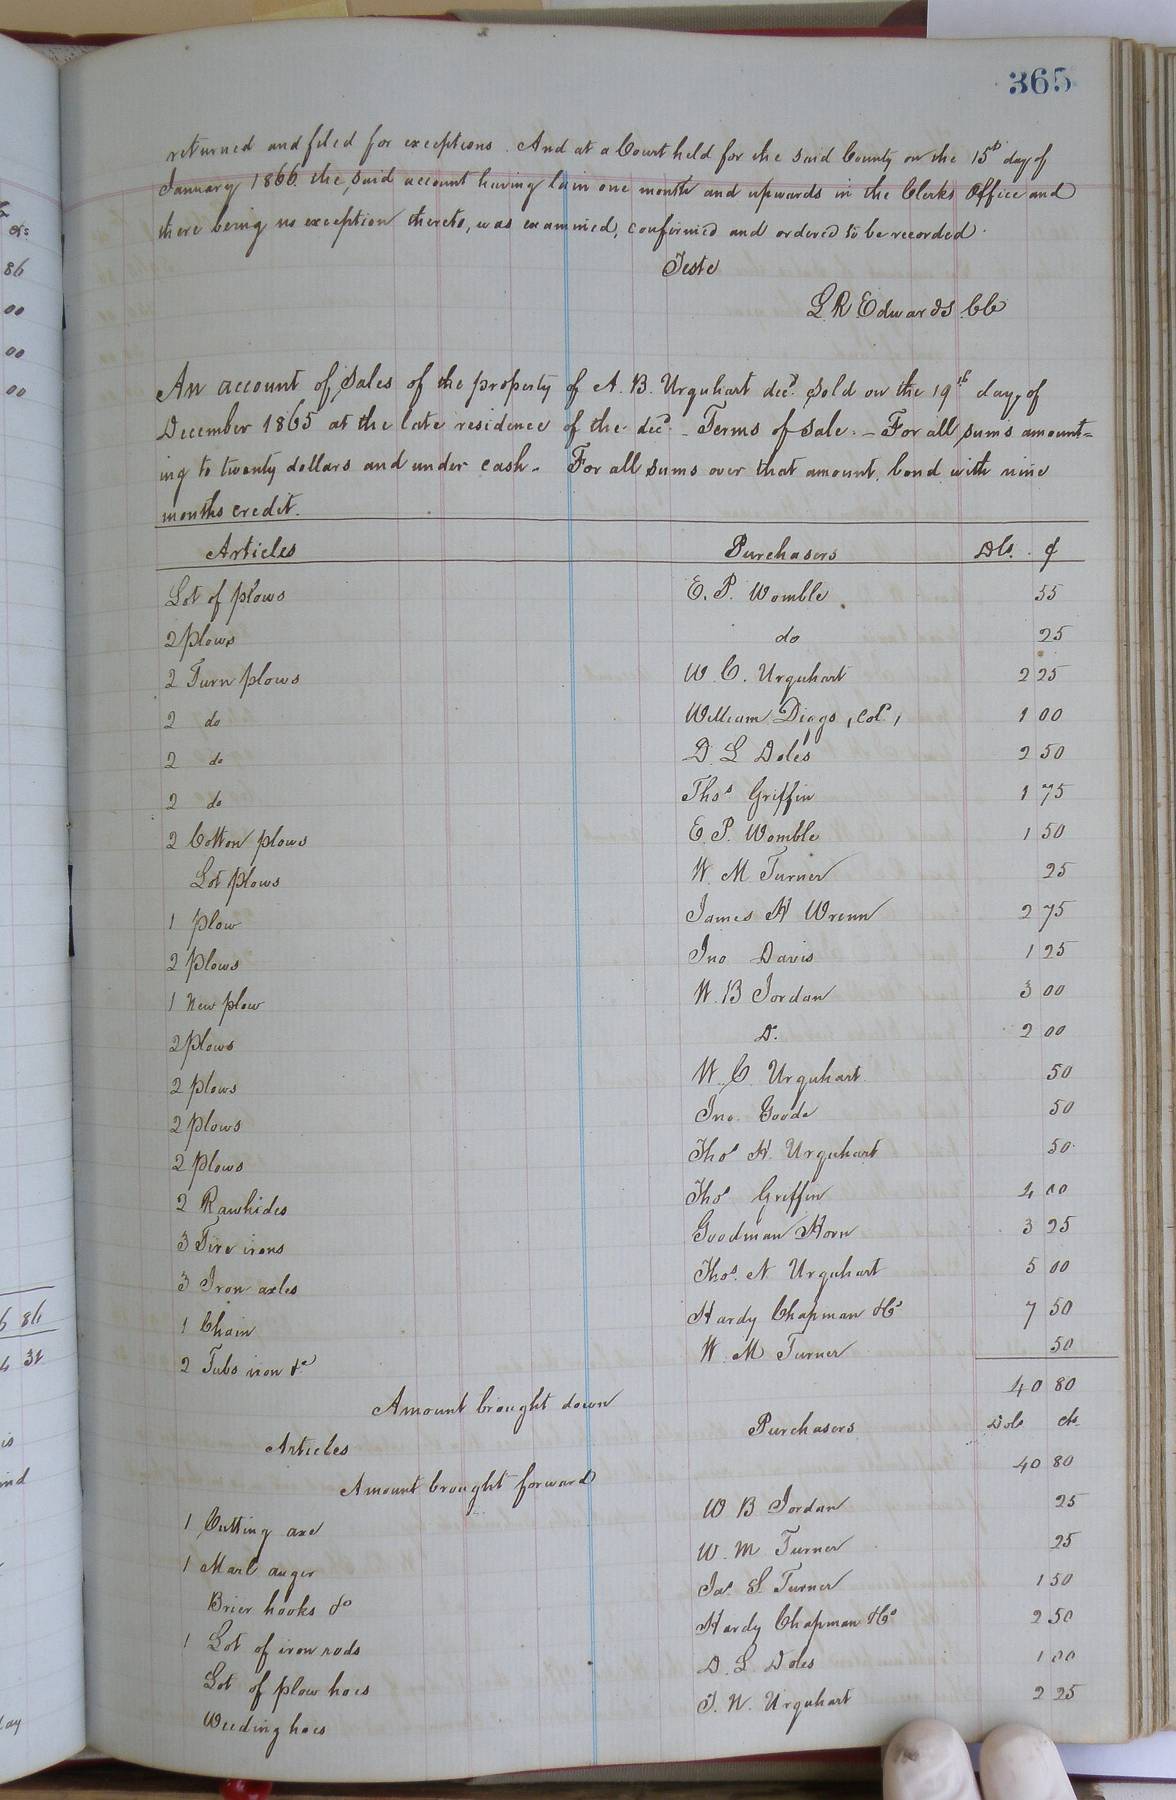 365
returned and filed for exceptions. And at a Court held for the said County on the 15th day of
January 1866. the said account having lain one month and upwards in the Clerks Office and
there being no exception thereto, was examined, confirmed and ordered to be recorded.
Teste
L R Edwards CC
An account of Sales of the property of A. B. Urquhart decd. Sold on the 19th day, of
December 1865 at the late residence of the decd. - Terms of Sale. - For all sums amount=
ing to twenty dollars and under cash - For all sums over that amount, bond with nine
months credit.
Articles Purchasers Dls. ¢
Lot of plows E. P. Womble 55
2 Plows do 25
2 Turn plows W. C. Urquhart 2 25
2 do William Diggs, Cold, 1 00
2 do D. L Doles 2 50
2 do Thos Griffin 1 75
2 Cotton plows E. P. Womble 1 50
Lot plows W. M Turner 25
1 plow James H Wrenn 2 75
2 plows Jno Davis 1 25
1 New plow W. B Jordan 3 00
2 plows D. 2 00
2 plows W. C Urquhart 50
2 plows Jno. Goode 50
2 plows Thos H. Urquhart 50
2 Rawhides Thos Griffin 4 00
3 Tire irons Goodman Horn 3 25
3 Iron axles Thos. N Urquhart 5 00
1 Chain Hardy Chapman 7 50
2 Tubs iron &c W. M Turner 50
Amount brought down 40 80
Articles Purchasers Dols cts
Amount brought forward 40 80
1 Cutting axe W B Jordan 25
1 Marl auger W. M Turner 25
Brier hooks &c Jas. S Turner 1 50
1 Lot of iron rods Hardy Chapman 2 50
Lot of plow hoes D. L Doles 1 00
Weeding hoes T. N. Urquhart 2 25
86
00
00
00
6 86
4 32